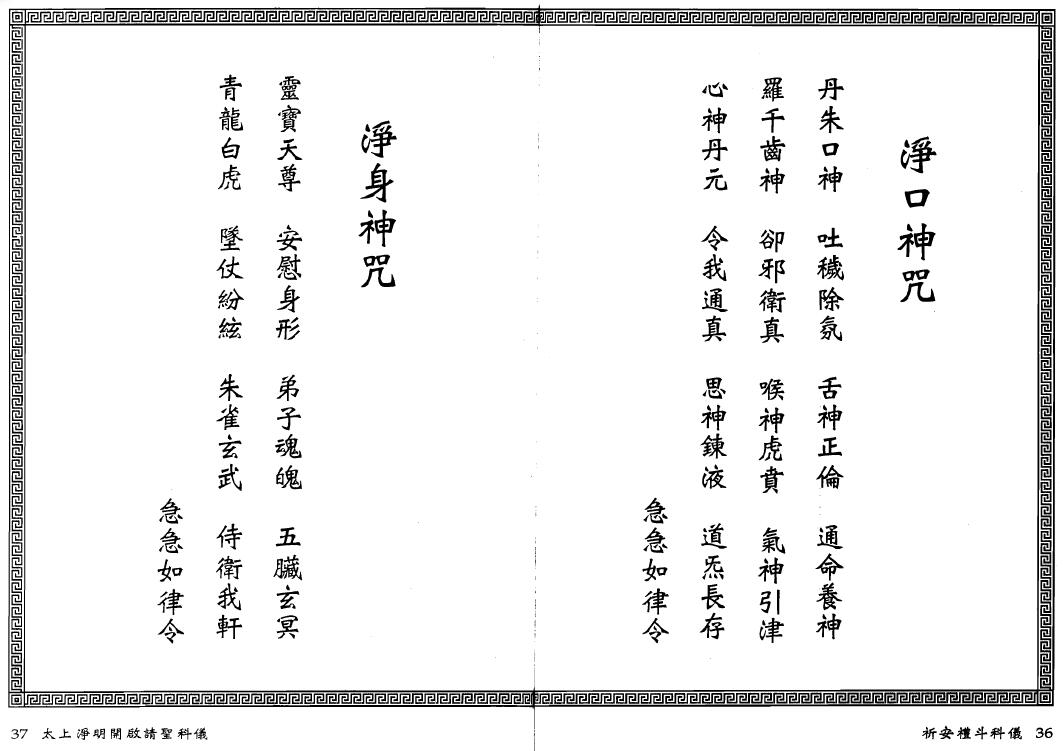 淨口神咒
丹朱口神 吐穢除氛 舌神正倫 通命養神
羅千齒神 卻邪衛真 喉神虎賁 氣神引津
心神丹元 令我通真 思神鍊液 道炁長存
急急如律令
祈安禮斗科儀 36
淨身神咒
靈寶天尊 安慰身形 弟子魂魄 五臟玄冥
青龍白虎 墜仗紛紜 朱雀玄武 侍衛我軒
急急如律令
37 太上淨明開啟請聖科儀